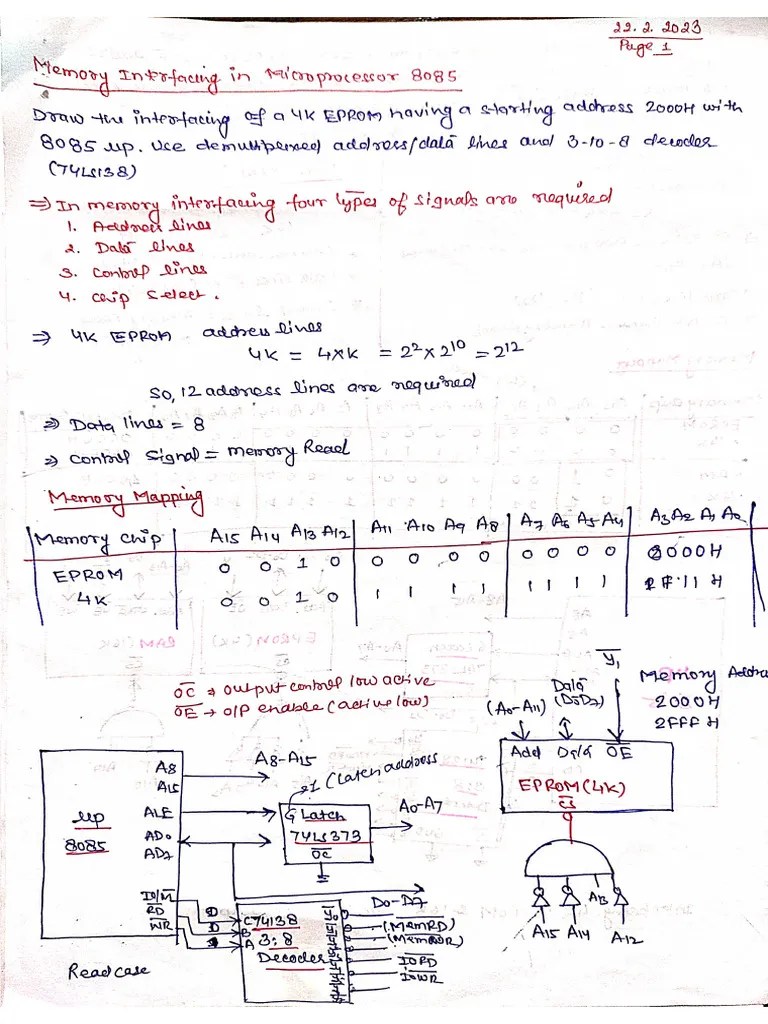 22.2.2023
Page 1
Memory Interfacing in Microprocessor 8085
Draw the interfacing of a 4K EPROM having a starting address 2000H with
8085 μp. Use demultiplexed address/data lines and 3-to-8 decoder
(74LS138)
⇒ In memory interfacing four types of signals are required
1. Address lines
2. Data lines
3. Control lines
4. Chip Select.
⇒ 4K EPROM address lines
4K = 4×K = 2² × 2¹⁰ = 2¹²
So, 12 address lines are required
⇒ Data lines = 8
⇒ Control Signal = Memory Read
Memory Mapping
Memory Chip A15 A14 A13 A12 A11 A10 A9 A8 A7 A6 A5 A4 A3 A2 A1 A0
EPROM 0 0 1 0 0 0 0 0 0 0 0 0 000H
4K 0 0 1 0 1 1 1 1 1 1 1 1 11H
OC ⇒ output control low active
OE → O/P enable (active low)
Y1
Memory Addre
2000H
2FFFH
(A0-A11)
Data
(D0D7)
Add Data OE
EPROM (4K)
CS
A15 A14 A13 A12
μp
8085
A8
A15
ALE
AD0
AD7
IO/M
RD
WR
A8-A15
1 (Latch address
G Latch
74LS373
OC
A0-A7
D0-D7
C 74138
B 3:8
A Decoder
(MemRD)
(MemWR)
IORD
IOWR
Read case